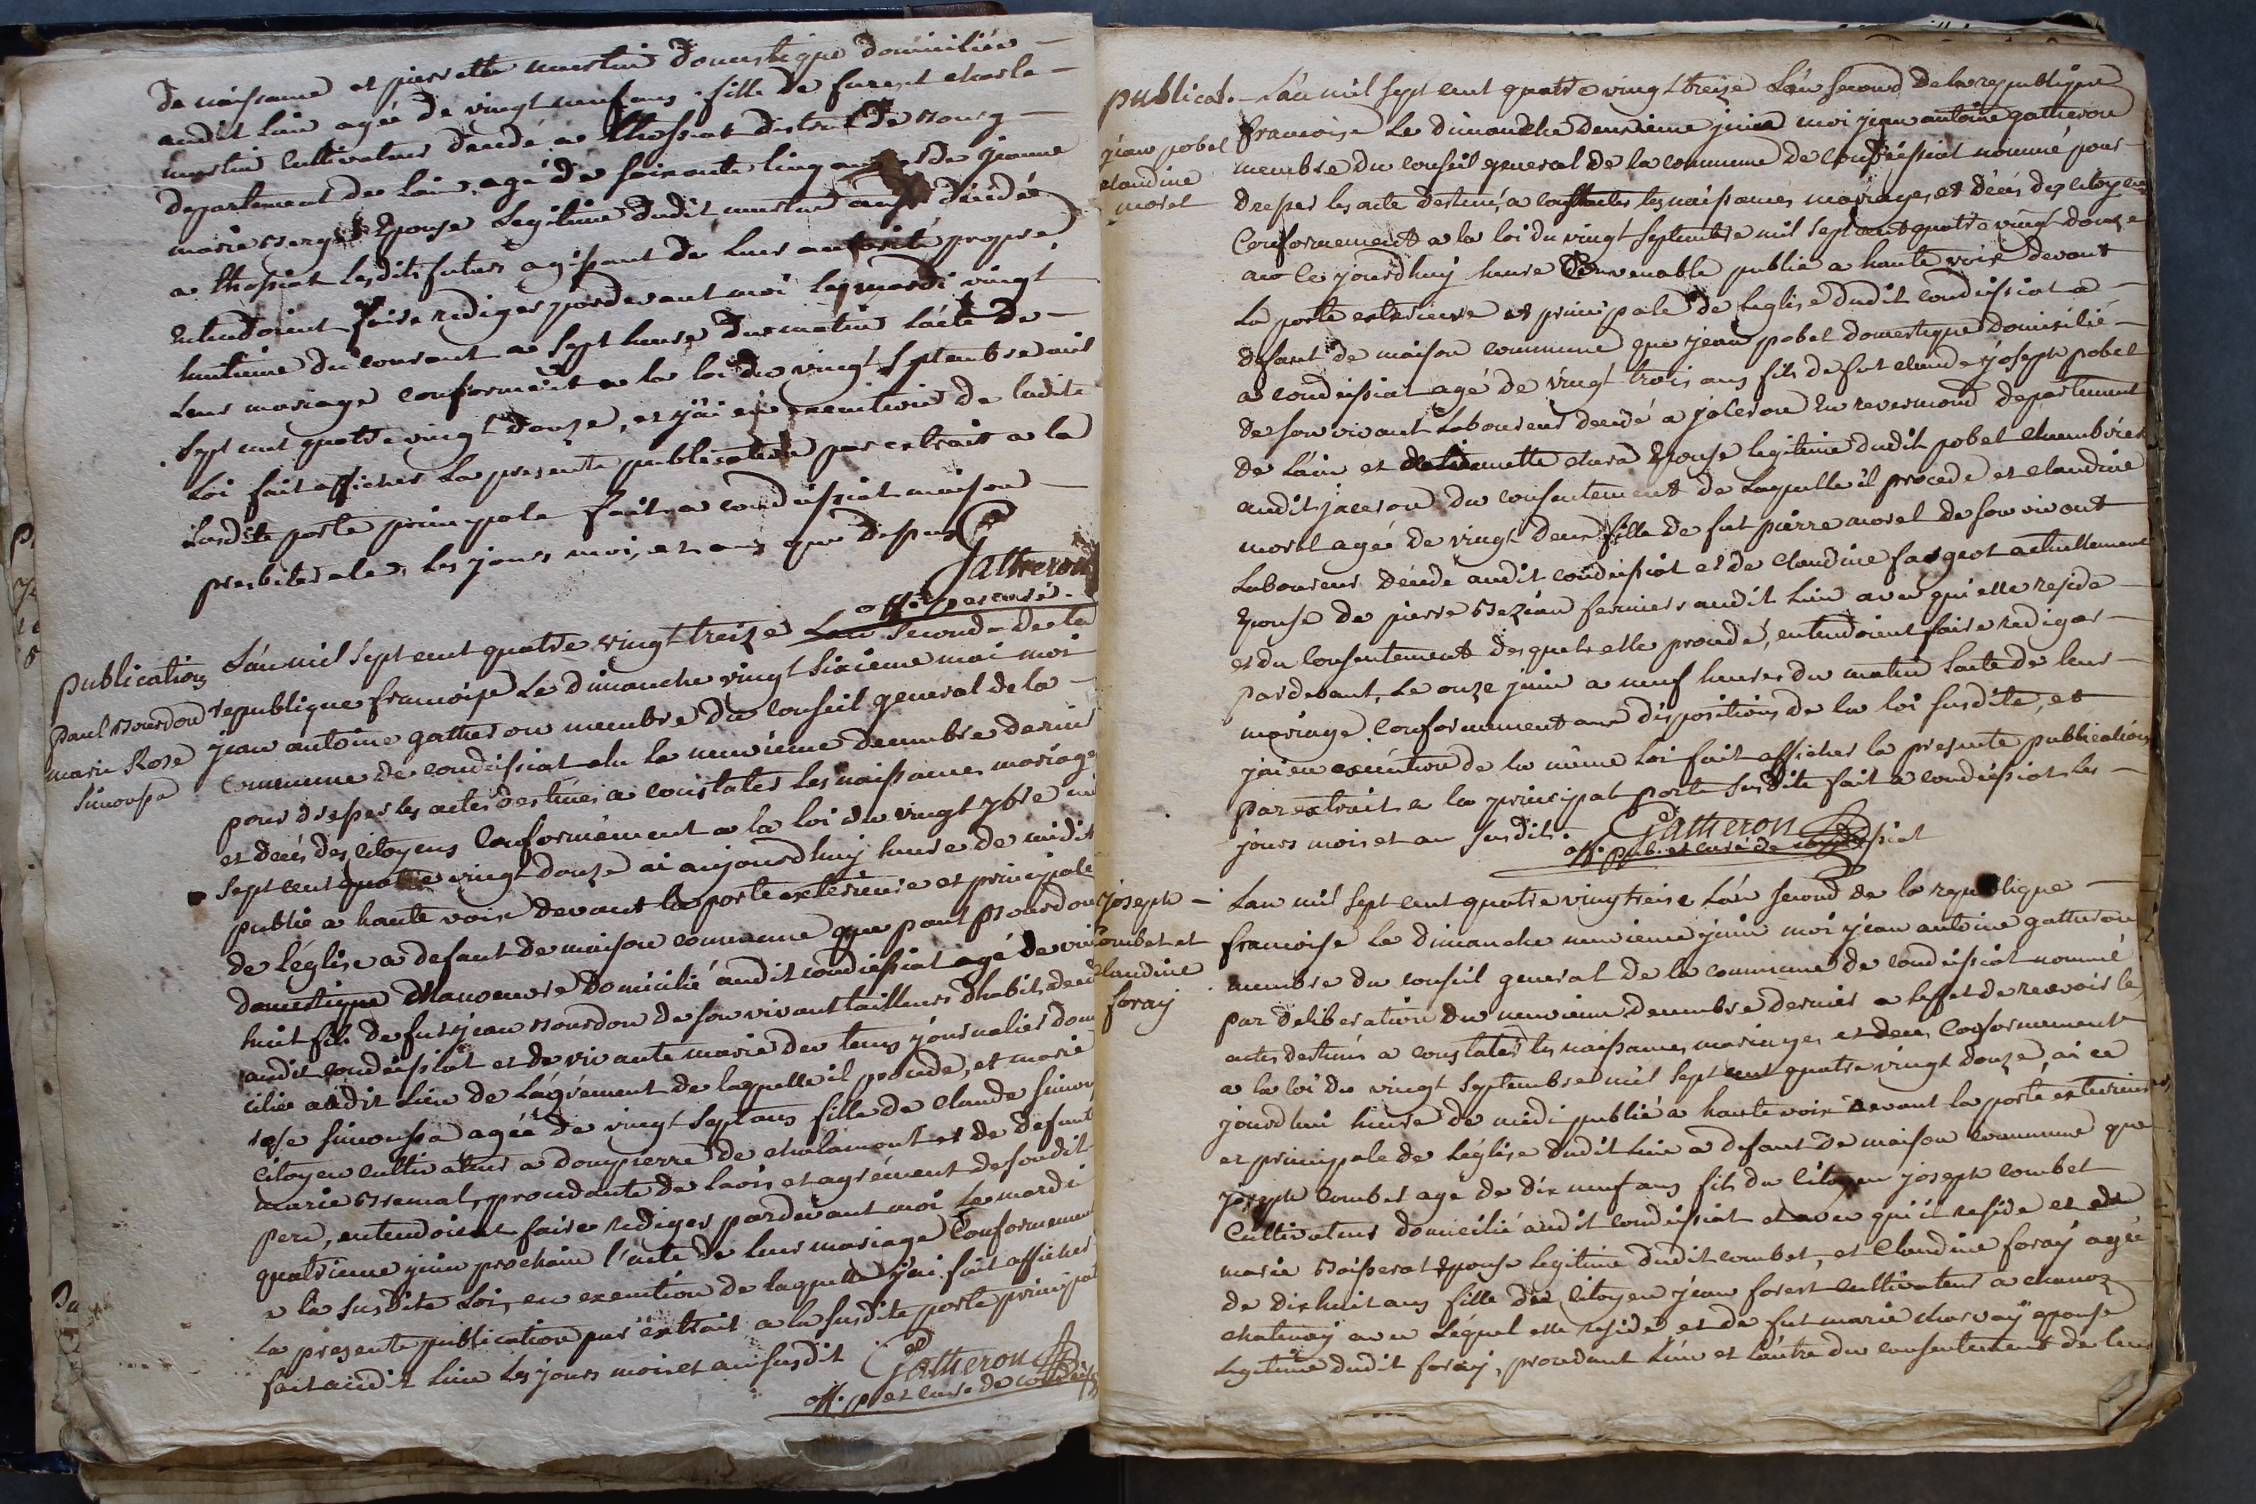 de naissance et pierrette martin domestique domiciliée
audit lieu agée de vingt neuf ans fille de furent charle
martin cultivateur décédé a thossiat district de Bourg
departement de lain, agé de soixante cinq ans et de jeanne
marie epouse legitime dudit martin aussi décédée
a thossiat lesdits futurs agissant de leur autorité propre
entendoient faire rediger pardevant moi le mardi vingt
huitieme du courant a sept heure du matin lacte de
leur mariage conformément a la loi du vingt septembre mil
sept cent quatre vingt douze, et j'ai en execution de ladite
Loi fait afficher la presente publication par extrait a la
susdite porte principale fait a condeissiat maison
presbiterale, les jours mois et an que dessus
Gatheron
off. p et curé.
publication
paul Bourdon
marie Rose
simousse
Lán mil sept cent quatre vingt treize Lan second de la
republique francoise le dimanche vingt sixieme mai moi
jean antoine gatheron membre du conseil general de la
commune de condeissiat elu le neuvieme decembre dernier
pour dresser les actes destinés a constater les naissances mariages
et decés des citoyens conformément a la loi du vingt 7bre mil
sept cent quatre vingt douze ai aujourdhuy heure de midi
publié a haute voix devant la porte exterieure et principale
de léglise a defaut de maison commune que paul Bourdon
domestique manoeuvre domicilié audit condeissiat agé de vin
huit fils de fut jean Bourdon de son vivant tailleur dhabits deced
audit condeissiat et de vivante marie du tems journalier dom
ciliée audit lieu de lágrément de laquelle il procede, et marie
rose simousse agée de vingt sept ans fille de claude simou
citoyen cultivateur a dompierre de chalamont et de defunte
marie Bremal, procedante de lavis et agrément de sondit
pere, entendoient faire rediger pardevant moi le mardi
quatrieme juin prochain l'acte de leur mariage conformement
a la susdite Loi, en execution de laquelle j'ai fait afficher
la presente publication par extrait a la susdite porte principal
fait audit lieu les jours mois et an susdit
Gatheron
off. p et curé de condeiss
publicat.
jean pobel
claudine
morel
Lán mil sept cent quatre vingt treize Lán second de la republique
francoise le dimanche deuxieme juin moi jean antoine gatheron
membre du conseil general de la commune de condeissiat nommé pour
dresser les acte destinés a constater les naissances mariages et décés des citoyens
conformement a la loi du vingt septembre mil sept cent quatre vingt douze
ai ce jourdhuy heure convenable publié a haute voix devant
la porte exterieure et principale de leglise dudit condeissiat a
defaut de maison commune que jean pobel domestique domicilié
a condeissiat agé de vingt trois ans fils de fut claude joseph pobel
de son vivant laboureur decedé a jaceron en revermond departement
de láin et detiennette chera epouse legitime dudit pobel chambrier
audit jaceron du consentement de laquelle il procede et claudine
morel agée de vingt deux fille de fut pierre morel de son vivant
laboureur décédé audit condeissiat et de claudine fargeot actuellement
epouse de pierre Bezian fermier audit lieu avec qui elle reside
et du consentement desquels elle procede, entendoient faire rediger
pardevant, le onze juin a neuf heures du matin lacte de leur
mariage conformement aux dispositions de la loi susdite, et
jai en execution de la même Loi fait afficher la presente publication
par extrait a la principal porte susdite fait a condeissiat les
jours mois et an susdit.
Gatheron
off. pub. et curé de condeissiat
joseph
combet et
claudine
foray
Lan mil sept cent quatre vingt treize Lán second de la republique
francoise le dimanche neuvieme juin moi jean antoine gatheron
membre du conseil general de la commune de condeissiat nommé
par deliberation du neuvieme decembre dernier a leffet de recevoir les
actes destinés a constater les naissances mariages et deces conformement
a la loi du vingt septembre mil sept cent quatre vingt douze, ai ce
jourdhui heure de midi publié a haute voix devant la porte exterieure
et principale de léglise dudit lieu a defaut de maison commune que
joseph combet age de dix neuf ans fils du citoyen joseph combet
cultivateur domicilié audit condeissiat et avec qui il reside et de
marie Boisserat epouse legitime dudit combet, et claudine foray agée
de dix huit ans fille du citoyen jean forest cultivateur a chanoz
chatenay avec léquel elle reside et de fut marie charvay epouse
legitime dudit foray, procedant lún et láutre du consentement de leur